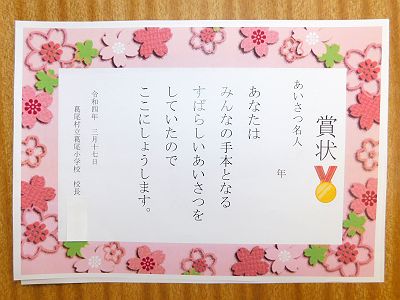 賞状
あいさつ名人
年
あなたは
みんなの手本となる
すばらしいあいさつを
していたので
ここにしょうします。
令和四年　三月十七日
葛尾村立葛尾小学校　校長